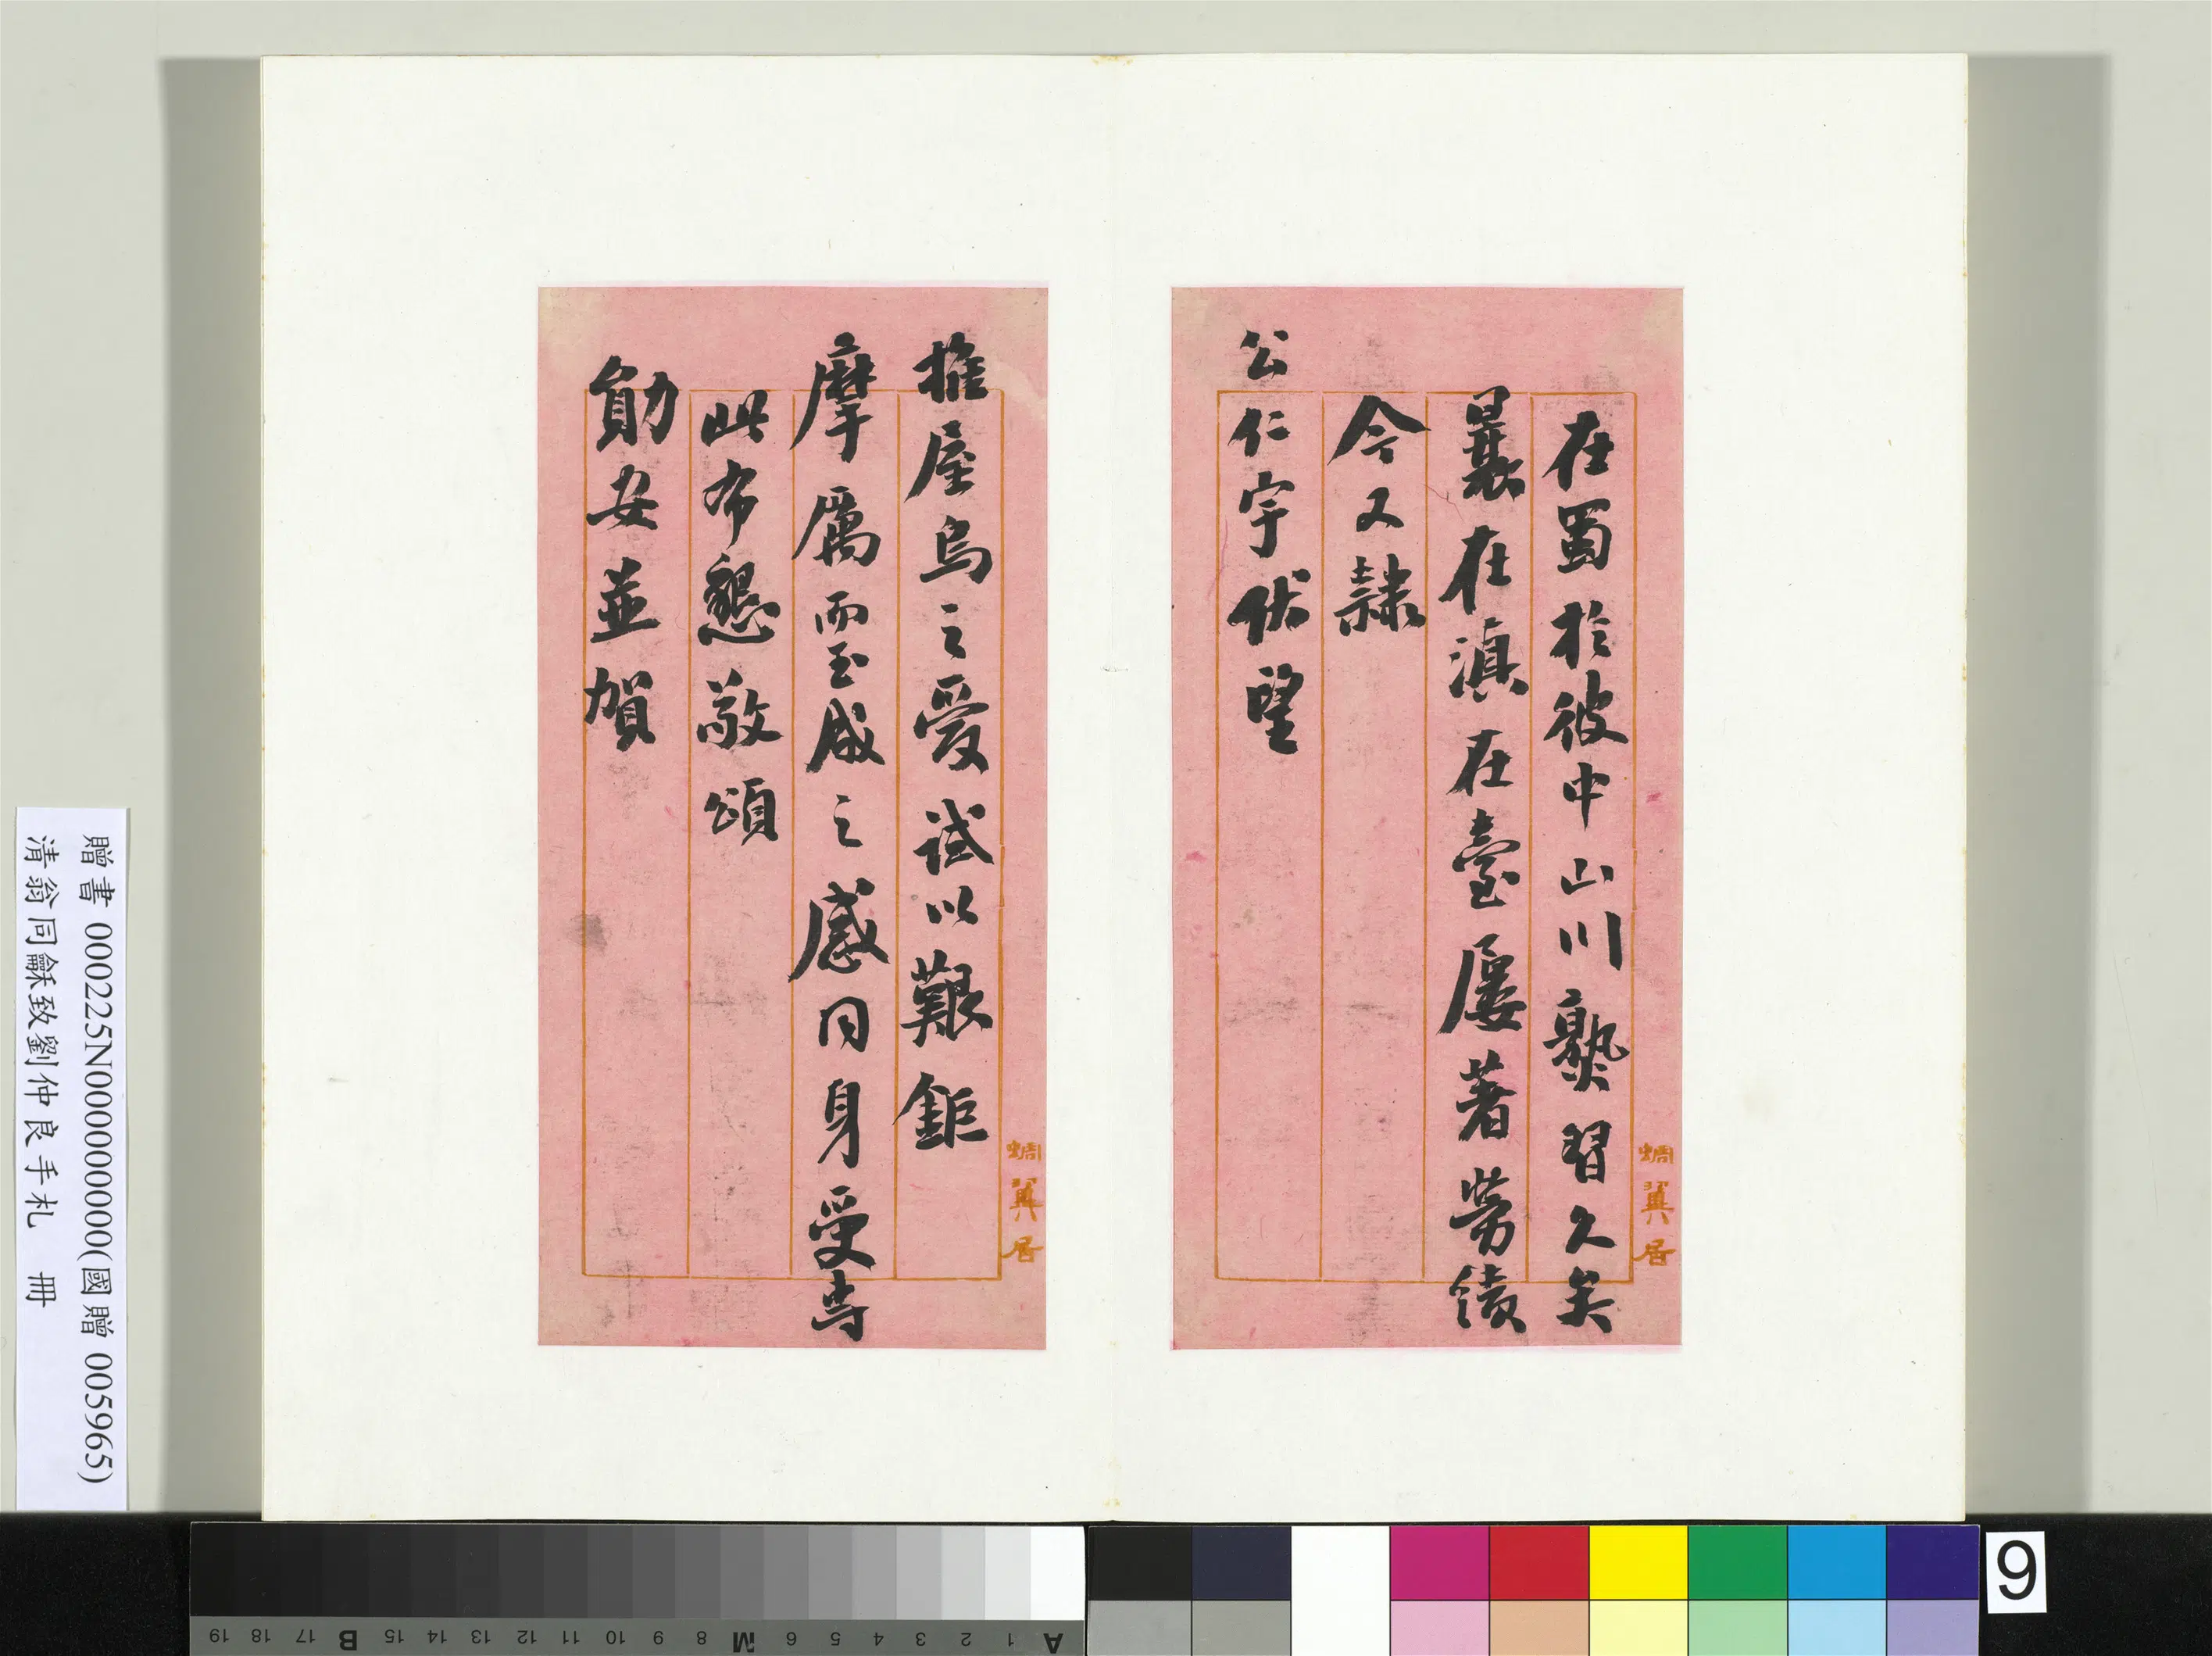 在蜀於彼中山川熟習久矣
曩在滇在臺屢著勞績
今又隸
公仁宇伏望
蜩翼居
推屋烏之愛試以艱鉅
摩厲而玉成之感同身受专
此布懇敬頌
勛安並賀
蜩翼居
贈書 000225N000000000(國贈 005965)
清翁同龢致劉仲良手札 冊
19 18 17 B 15 14 13 12 11 10 9 8 M 6 5 4 3 2 1 A
9